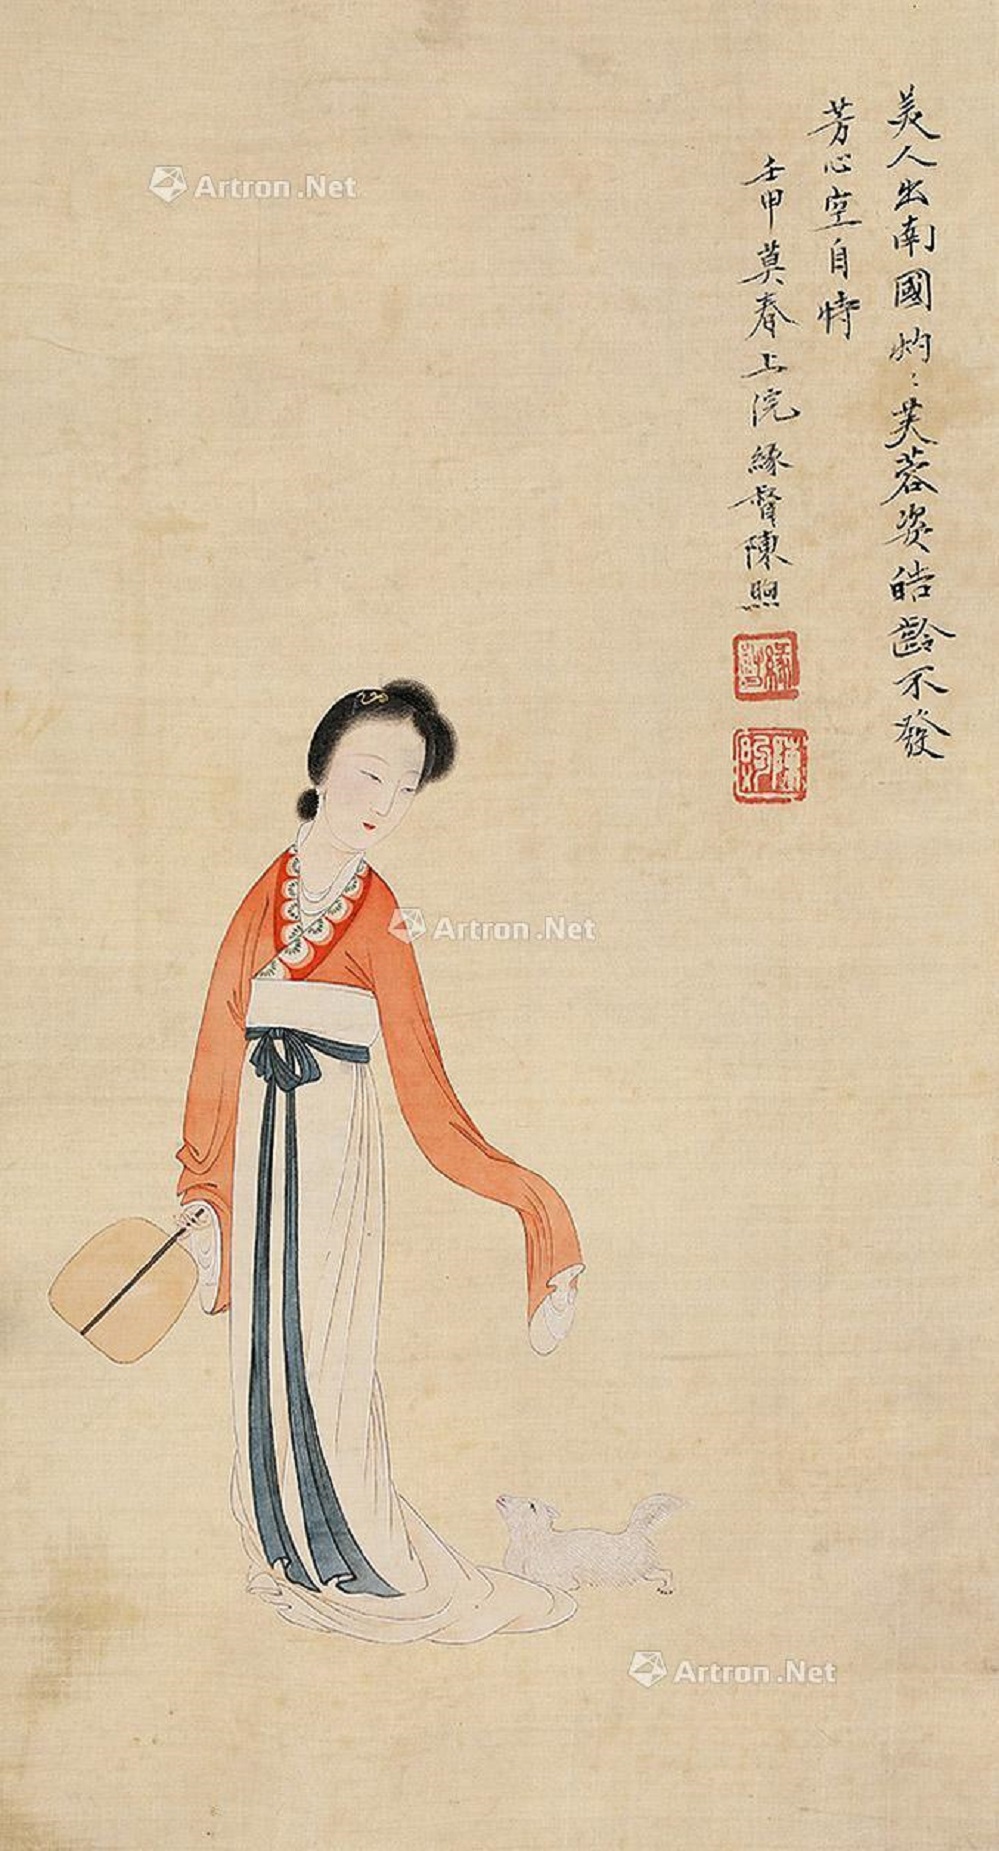 美人出南國灼〻芙蓉姿皓齡不發
芳心空自恃
壬申莫春上浣緣督陳煦
緣督
陳煦
Artron.Net
Artron.Net
Artron.Net